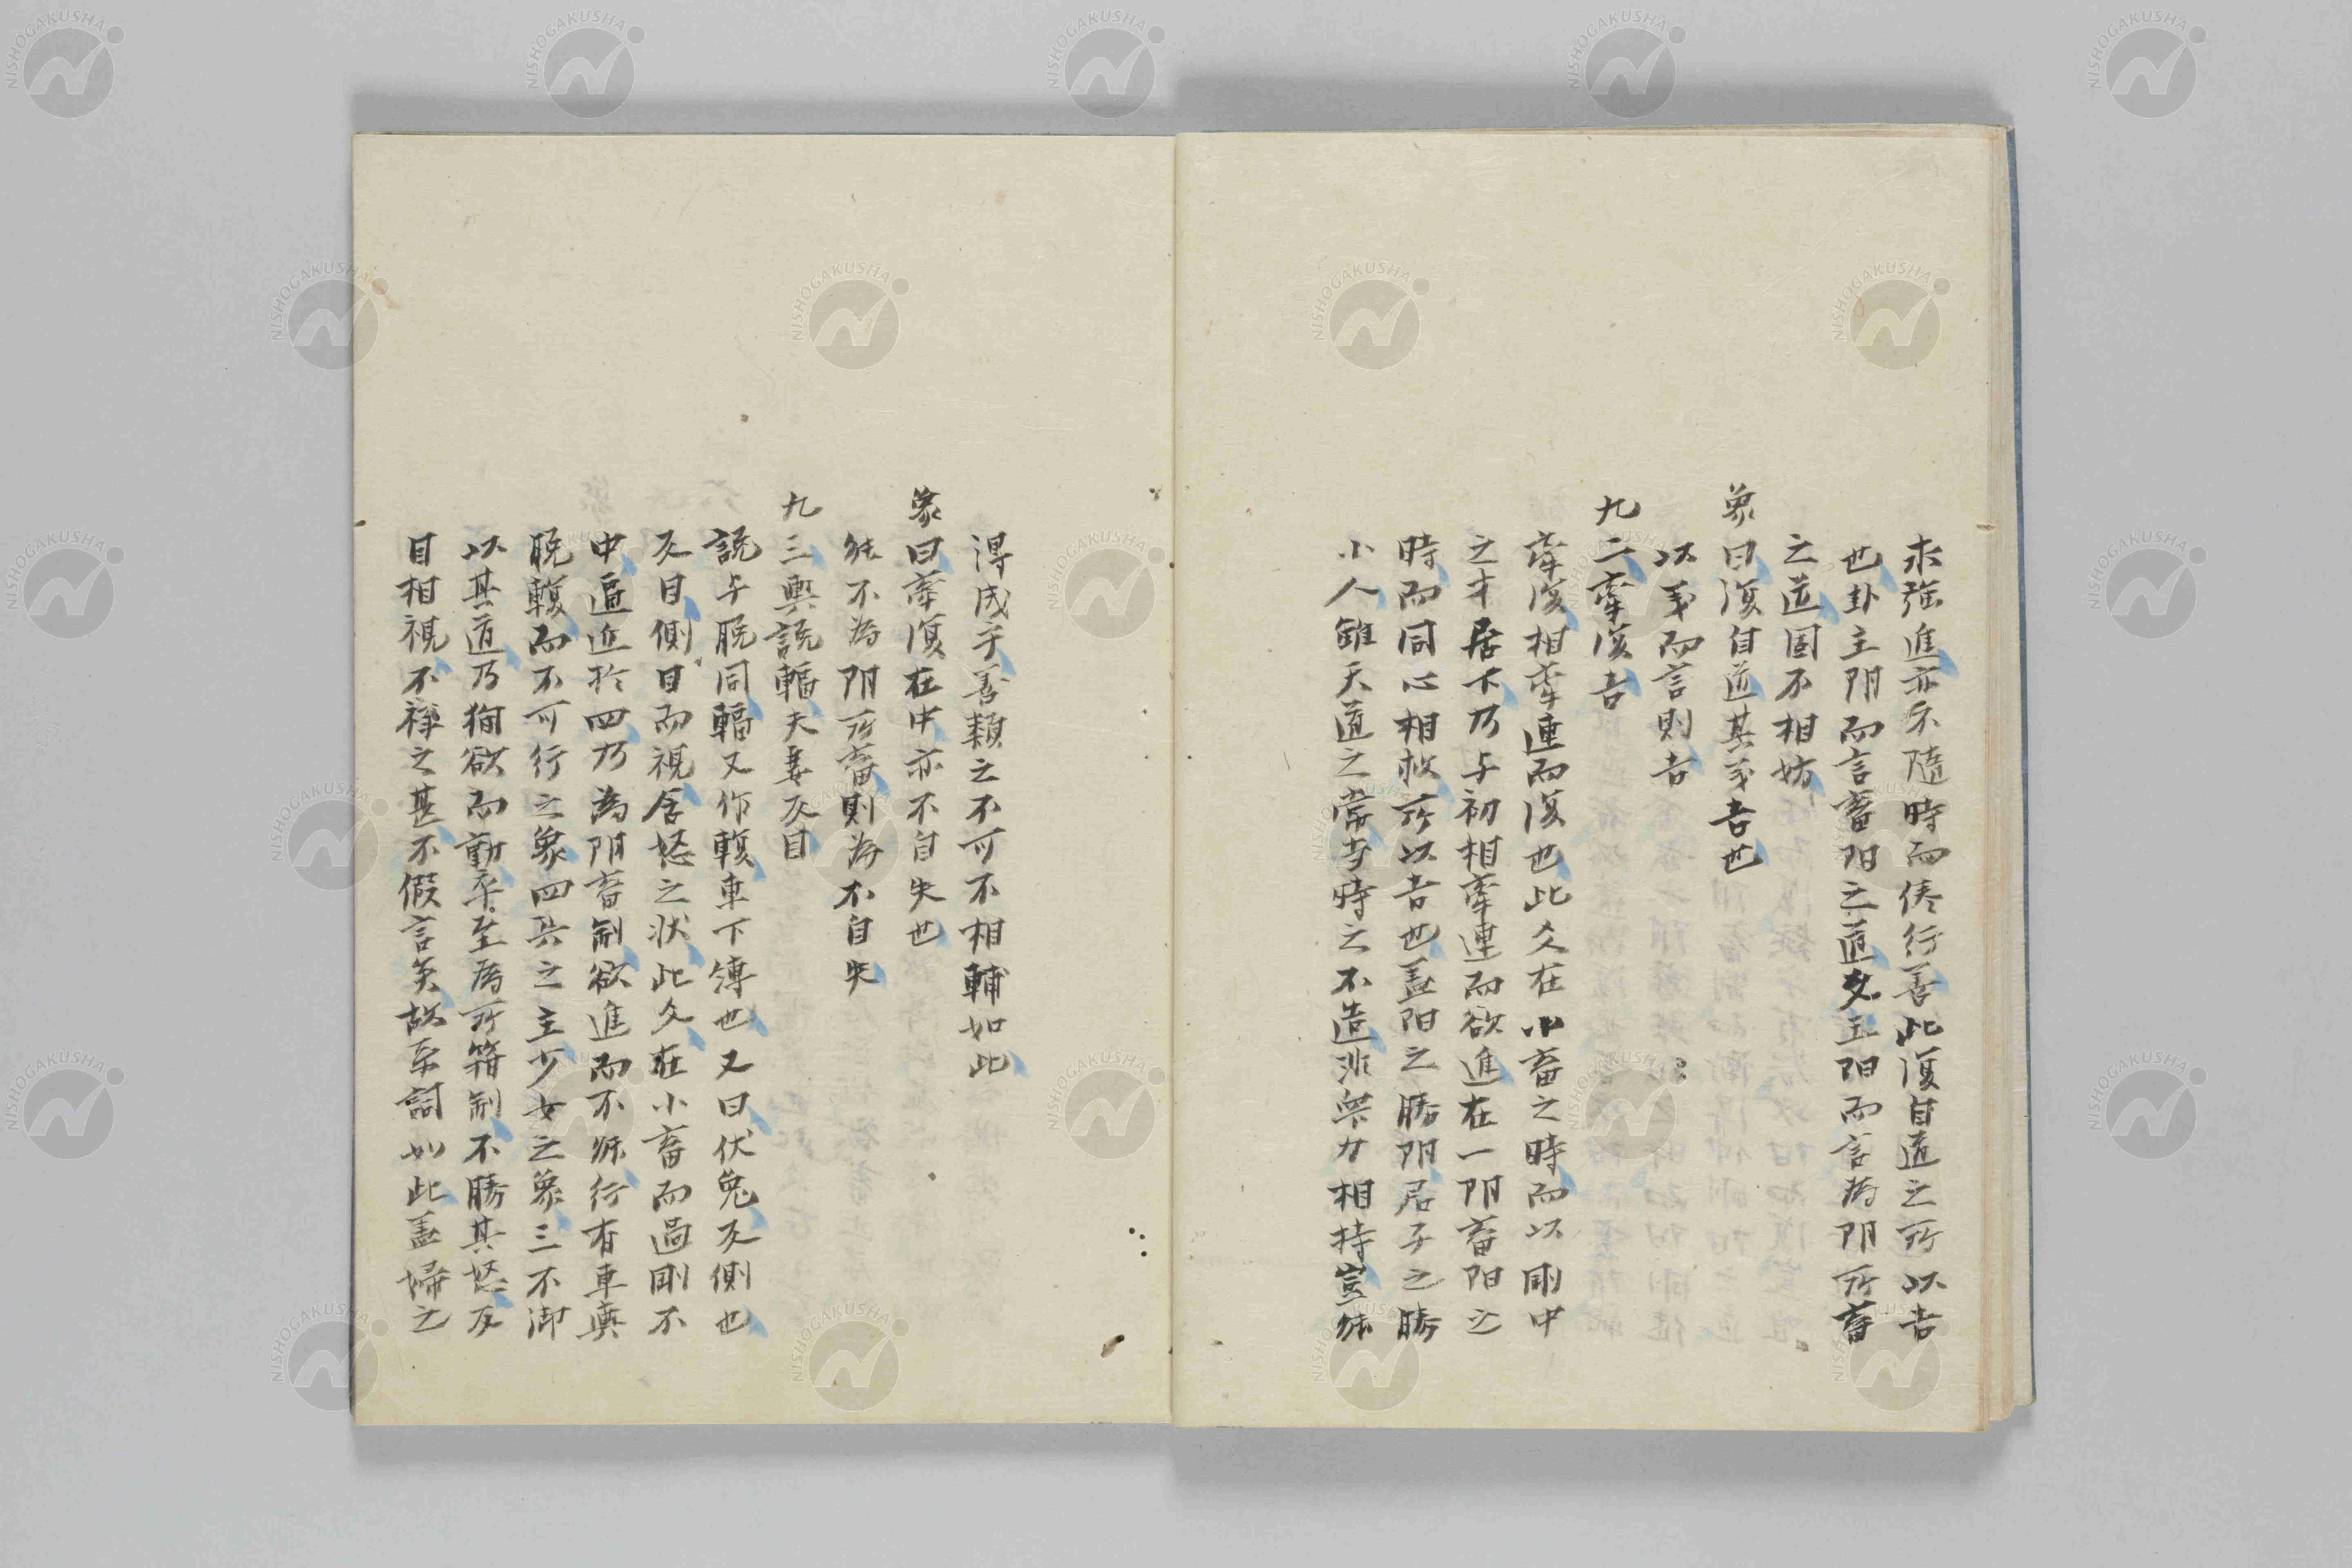 求強進亦不隨時而倦行善此復自道之所以吉
也卦主阴而言畜阳之道爻主阳而言為阴所畜
之道固不相妨
象曰復自道其義吉也
以義而言則吉
九二牽復吉
牽復相牽連而復也此爻在小畜之時而以剛中
之才居下乃与初相牽連而欲進在一阴畜阳之
時而同心相救所以吉也蓋阳之勝阴君子之勝
小人雖天道之常方時之不造非無力相持豈能
得成乎善類之不可不相輔如此
象曰牽復在中亦不自失也
能不為阴所畜則為不自失
九三輿說輻夫妻反目
說与脫同輻又作輹車下縛也又曰伏兔反側也
反目側目而視含怒之状此爻在小畜而過剛不
中逼近於四乃為阴畜制欲進而不能行有車輿
脫輹而不可行之象四巽之主少女之象三不御
以其道乃徇欲而動卒至為所箝制不勝其怒反
目相視不祥之甚不假言矣故系詞如此蓋婦之